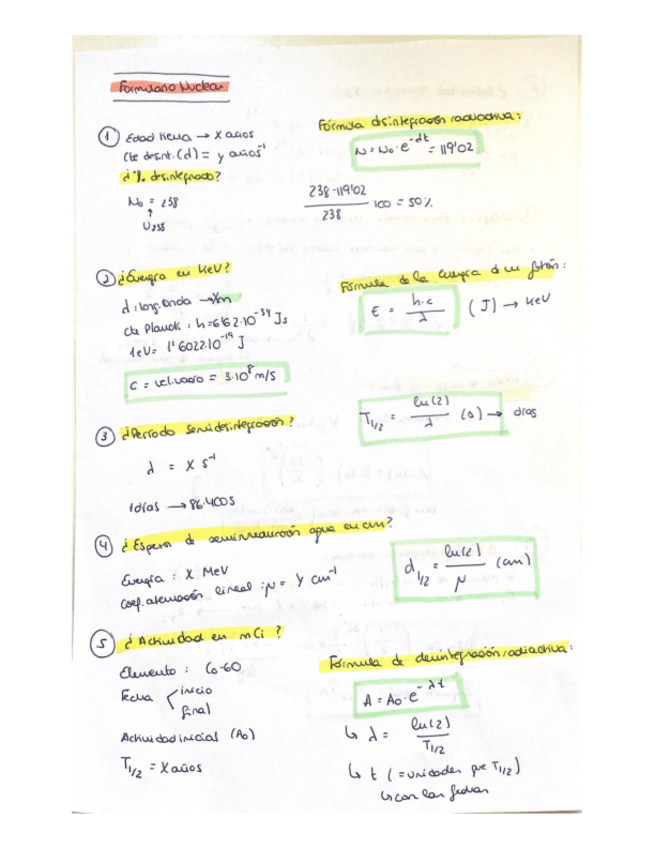 Formulario Nuclear
① Edad tierra → X años
Cte desint. (d) = y años⁻¹
¿% desintegrado?
N₀ = 238
↑
U238
Fórmula desintegración radiactiva:
N = N₀ · e^-dt = 119'02
238-119'02 / 238 · 100 = 50%
② ¿Energía en KeV?
d: long. onda → Xm
cte Planck: h = 6'62·10⁻³⁴ Js
1eV = 1'6022·10⁻¹⁹ J
C = vel. vacío = 3·10⁸ m/s
Fórmula de la energía de un fotón:
E = h·c / λ (J) → KeV
③ ¿Período semidesintegración?
λ = X s⁻¹
1 días → 86.400S
T1/2 = ln(2) / λ (s) → días
④ ¿Espesor de semirreducción agua en cm?
Energía: X MeV
coef. atenuación lineal: μ = y cm⁻¹
d1/2 = ln(2) / μ (cm)
⑤ ¿Actividad en mCi?
Elemento: Co-60
Fecha < inicio
final
Actividad inicial (A₀)
T1/2 = X años
Fórmula de desintegración radiactiva:
A = A₀ · e^-λt
↳ λ = ln(2) / T1/2
↳ t (= unidades que T1/2)
↳ con las fechas